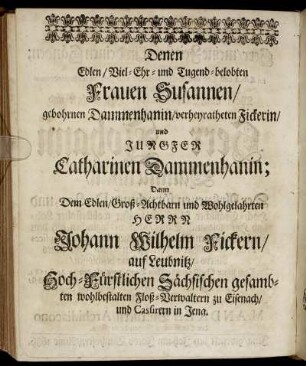 Denen
Edlen/ Viel-Ehr- und Tugend-belobten
Frauen Susannen/
gebohrnen Dammenhanin/verheyratheten Fickerin/
und
JUNGFER
Catharinen Dammenhanin;
Dann
Dem Edlen/ Groß-Achtbarn und Wohlgelahrten
HERRN
Johann Wilhelm Fickern/
auf Leubnitz/
Hoch-Fürstlichen Sächsischen gesamb-
ten wohlbestalten Floß-Verwaltern zu Eisenach/
und Cassirern in Jena.